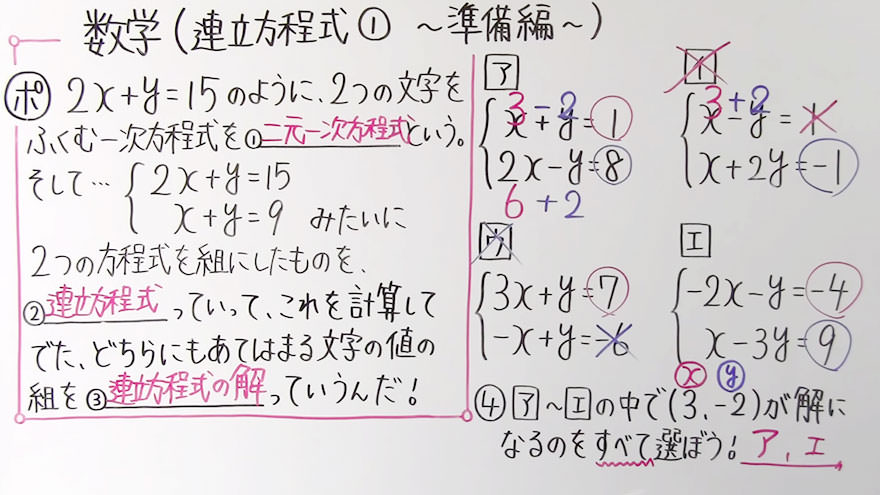 数学(連立方程式① ～準備編～)
ポ 2x+y=15のように、2つの文字を
ふくむ一次方程式を①二元一次方程式という。
そして… { 2x+y=15
x+y=9 みたいに
2つの方程式を組にしたものを、
②連立方程式っていって、これを計算して
でた、どちらにもあてはまる文字の値の
組を③連立方程式の解っていうんだ！
ア
3 -2
{ x+y=1
2x-y=8
6+2
イ
3+2
{ x-y=1
x+2y=-1
ウ
{ 3x+y=7
-x+y=-6
エ
{ -2x-y=-4
x-3y=9
x y
④ ア～エの中で(3,-2)が解に
なるのをすべて選ぼう！ ア, エ